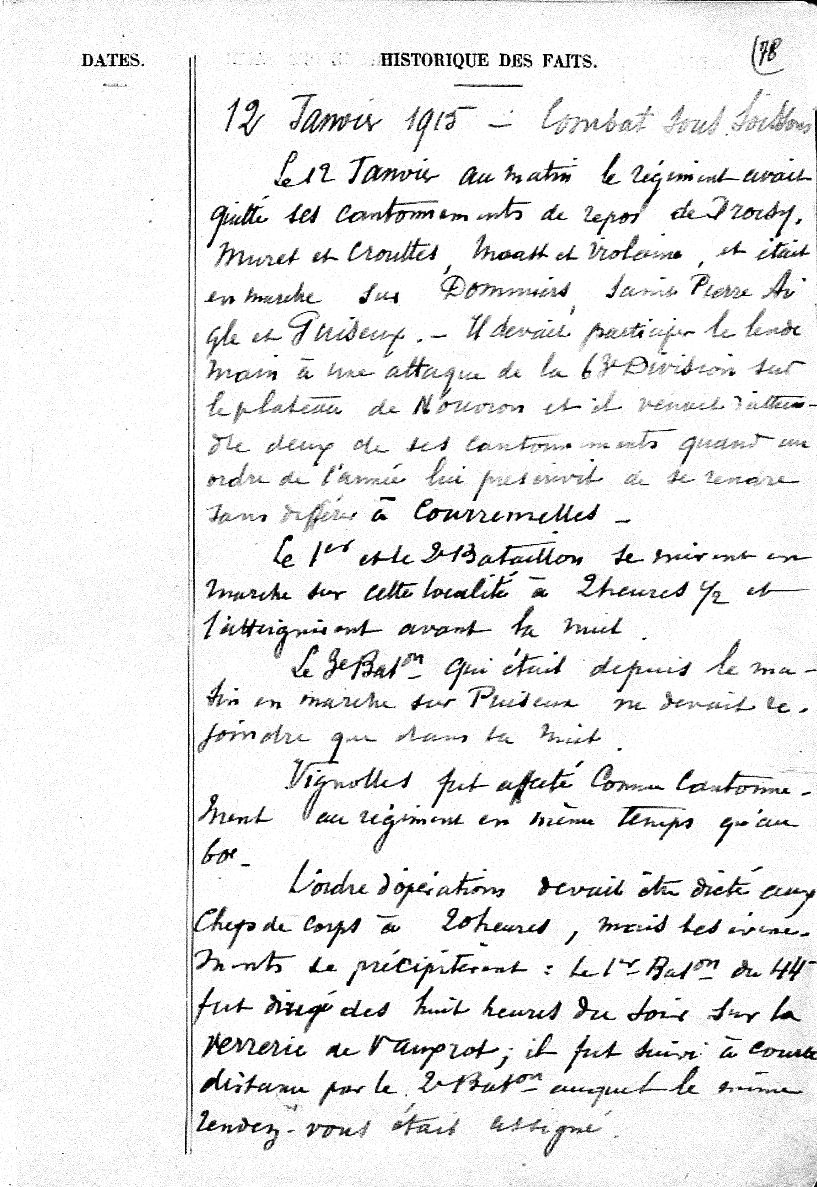 78
DATES. HISTORIQUE DES FAITS.
12 Janvier 1915 — Combat sous Soissons
Le 12 Janvier au matin le régiment avait
quitté ses cantonnements de repos de Droizy,
Muret et Crouttes, Maast et Violaine, et était
en marche sur Dommiers, Saint Pierre Ai
gle et Puiseux. — Il devait participer le lende
main à une attaque de la 63e Division sur
le plateau de Nouvron et il venait d'attein-
dre deux de ses cantonnements quand un
ordre de l'armée lui prescrivit de se rendre
sans différer à Courmelles —
Le 1er et le 2e Bataillon se mirent en
marche sur cette localité à 2 heures 1/2 et
l'atteignirent avant la nuit.
Le 3e Baton qui était depuis le ma-
tin en marche sur Puiseux ne devait re-
joindre que dans la nuit.
Vignolles fut affecté comme Cantonne-
ment au régiment en même temps qu'au
60e —
L'ordre d'opérations devait être dicté aux
Chefs de corps à 20 heures, mais les évène-
ments se précipitèrent : le 1er Baton du 44e
fut dirigé dès huit heures du soir sur la
verrerie de Vauxrot ; il fut suivi à courte
distance par le 2e Baton auquel le même
rendez-vous était assigné.